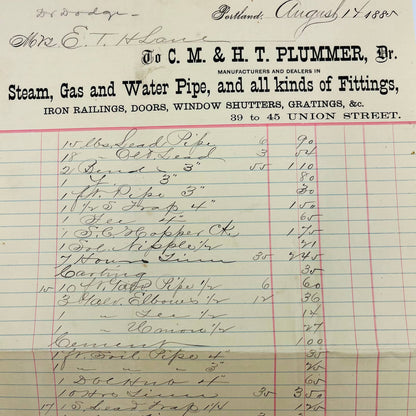 Dr Dodge
Portland, August 14 1885
Mrs E. T. H Lane
To C. M. & H. T. PLUMMER, Dr.
MANUFACTURERS AND DEALERS IN
Steam, Gas and Water Pipe, and all kinds of Fittings,
IRON RAILINGS, DOORS, WINDOW SHUTTERS, GRATINGS, &c.
39 to 45 UNION STREET.
15 lbs Lead Pipe 6 90
18 " Lead 3 54
2 Bend " 3" 55 110
1 Y " 3" 80
1 ft. Pipe 3" 30
1 1/2 S Trap 4" 150
1 Tee " 4" 65
1 S.C. Hopper 175
1 Nipple 1/2 21
7 Hours Time 35 245
Carting 35
15 10 ft. Galv Pipe 1/2 6 60
3 Galv. Elbows 1/2 12 36
1 " Tee 1/2 14
1 " Union 1/2 27
Cement 100
1 ft. Soil Pipe 4" 35
1 " " " 3" 26
1 Dbl Hub 4" 65
10 Hrs Time 35 350
17 1 S Lead Trap 1 1/4